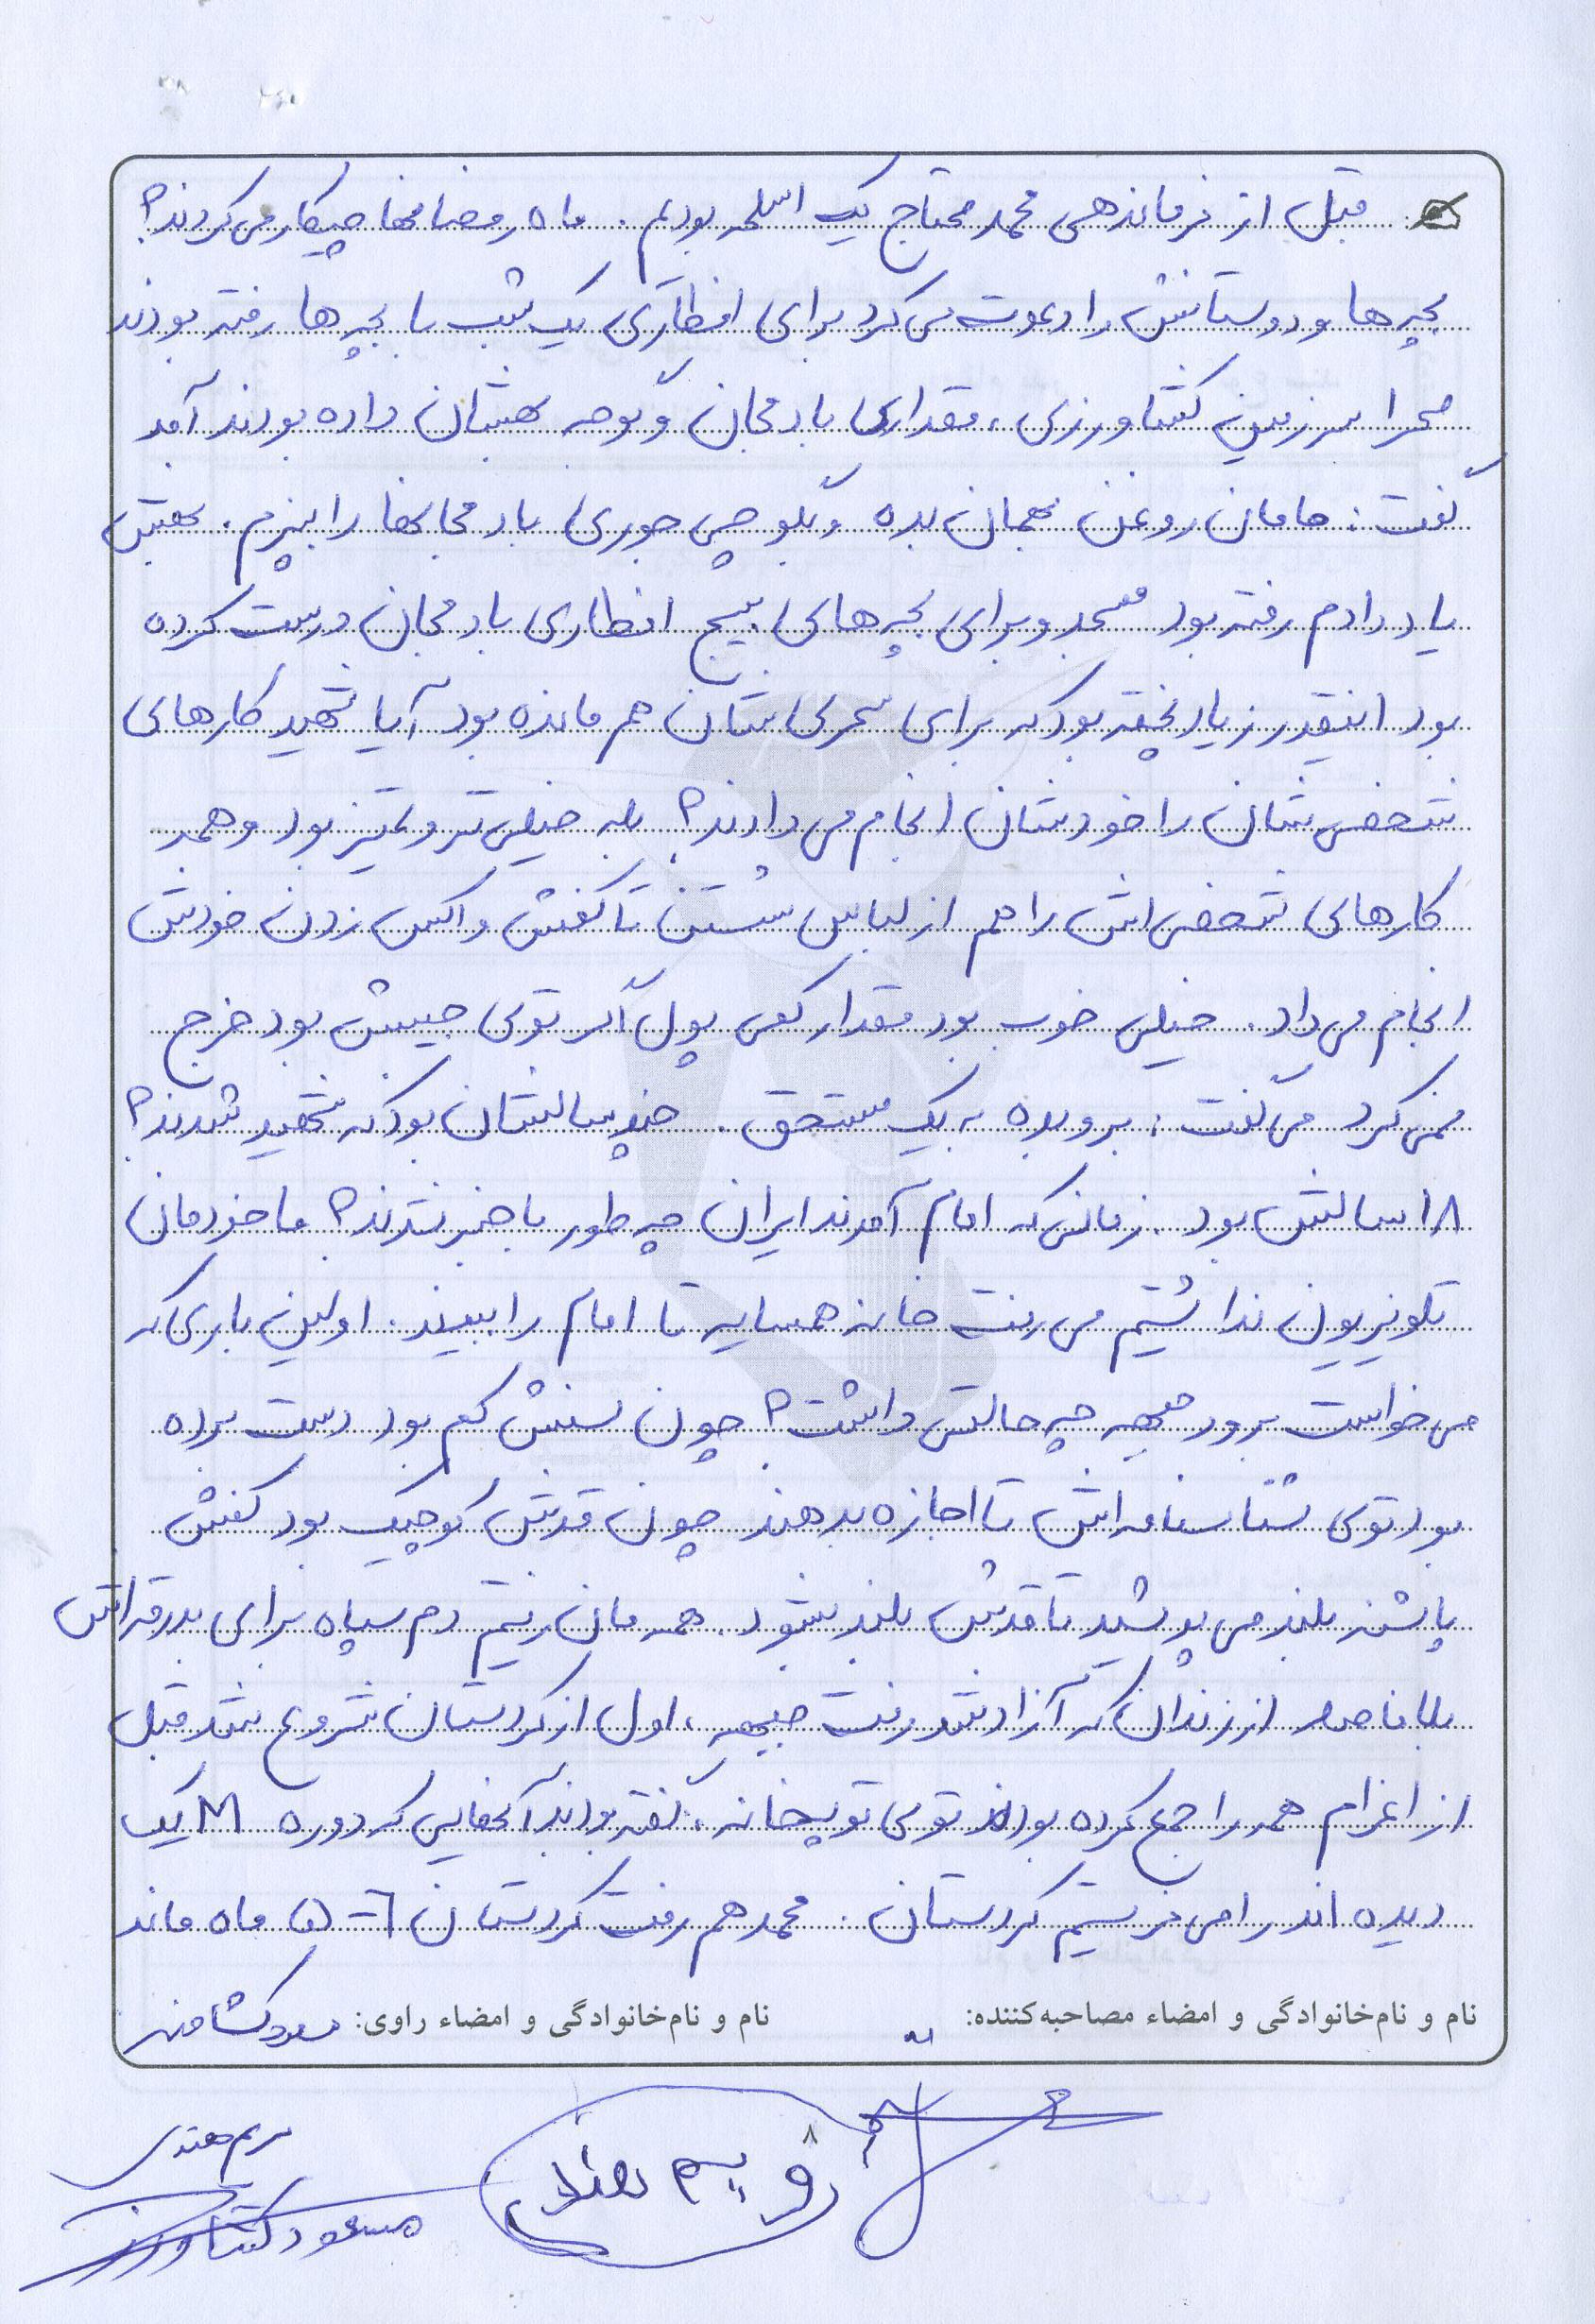 قبل از فرماندهی محمد محتاج یک اسلحه بودیم. ماه رمضانها چیکار می‌کردند؟
بچه‌ها و دوستانش را دعوت می‌کرد برای افطاری یک شب با بچه‌ها رفته بودند
صحرا سر زمین کشاورزی، مقداری بادمجان و گوجه بهشان داده بودند آمد
گفت: مامان روغن بهمان بده و بگو چی جوری بادمجانها را بپزم. بهش
یاد دادم رفته بود مسجد و برای بچه‌های بسیج افطاری بادمجان درست کرده
بود اینقدر زیاد پخته بود که برای سحری شان هم مانده بود آیا شهید کارهای
شخصی شان را خودشان انجام می‌دادند؟ بله خیلی تر و تمیز بود و همه
کارهای شخصی اش را هم از لباس شستن تا کفش واکس زدن خودش
انجام می‌داد. خیلی خوب بود مقدار کمی پول اگر توی جیبش بود خرج
نمی‌کرد می‌گفت: برو بده به یک مستحق. چند سالشان بود که شهید شدند؟
۱۸ سالش بود. زمانی که امام آمدند ایران چه طور باخبر شدند؟ ما خودمان
تلویزیون نداشتیم می‌رفت خانه همسایه تا امام را ببیند. اولین باری که
می‌خواست برود جبهه چه حالتی داشت؟ چون سنش کم بود دست برده
بود توی شناسنامه‌اش تا اجازه بدهند چون قدش کوچیک بود کفش
پاشنه بلند می‌پوشید تا قدش بلند بشود. همه مان رفتیم دم سپاه برای بدرقه‌اش
بلافاصله از زندان که آزاد شد رفت جبهه، اول از کردستان شروع شد قبل
از اعزام همه را جمع کرده بودند توی توپخانه، گفته بودند آنهایی که دوره M یک
دیده اند را می‌فرستیم کردستان. محمد هم رفت کردستان ۶-۵ ماه ماند
نام و نام‌خانوادگی و امضاء مصاحبه‌کننده: نام و نام‌خانوادگی و امضاء راوی:
مسعود کشاورز